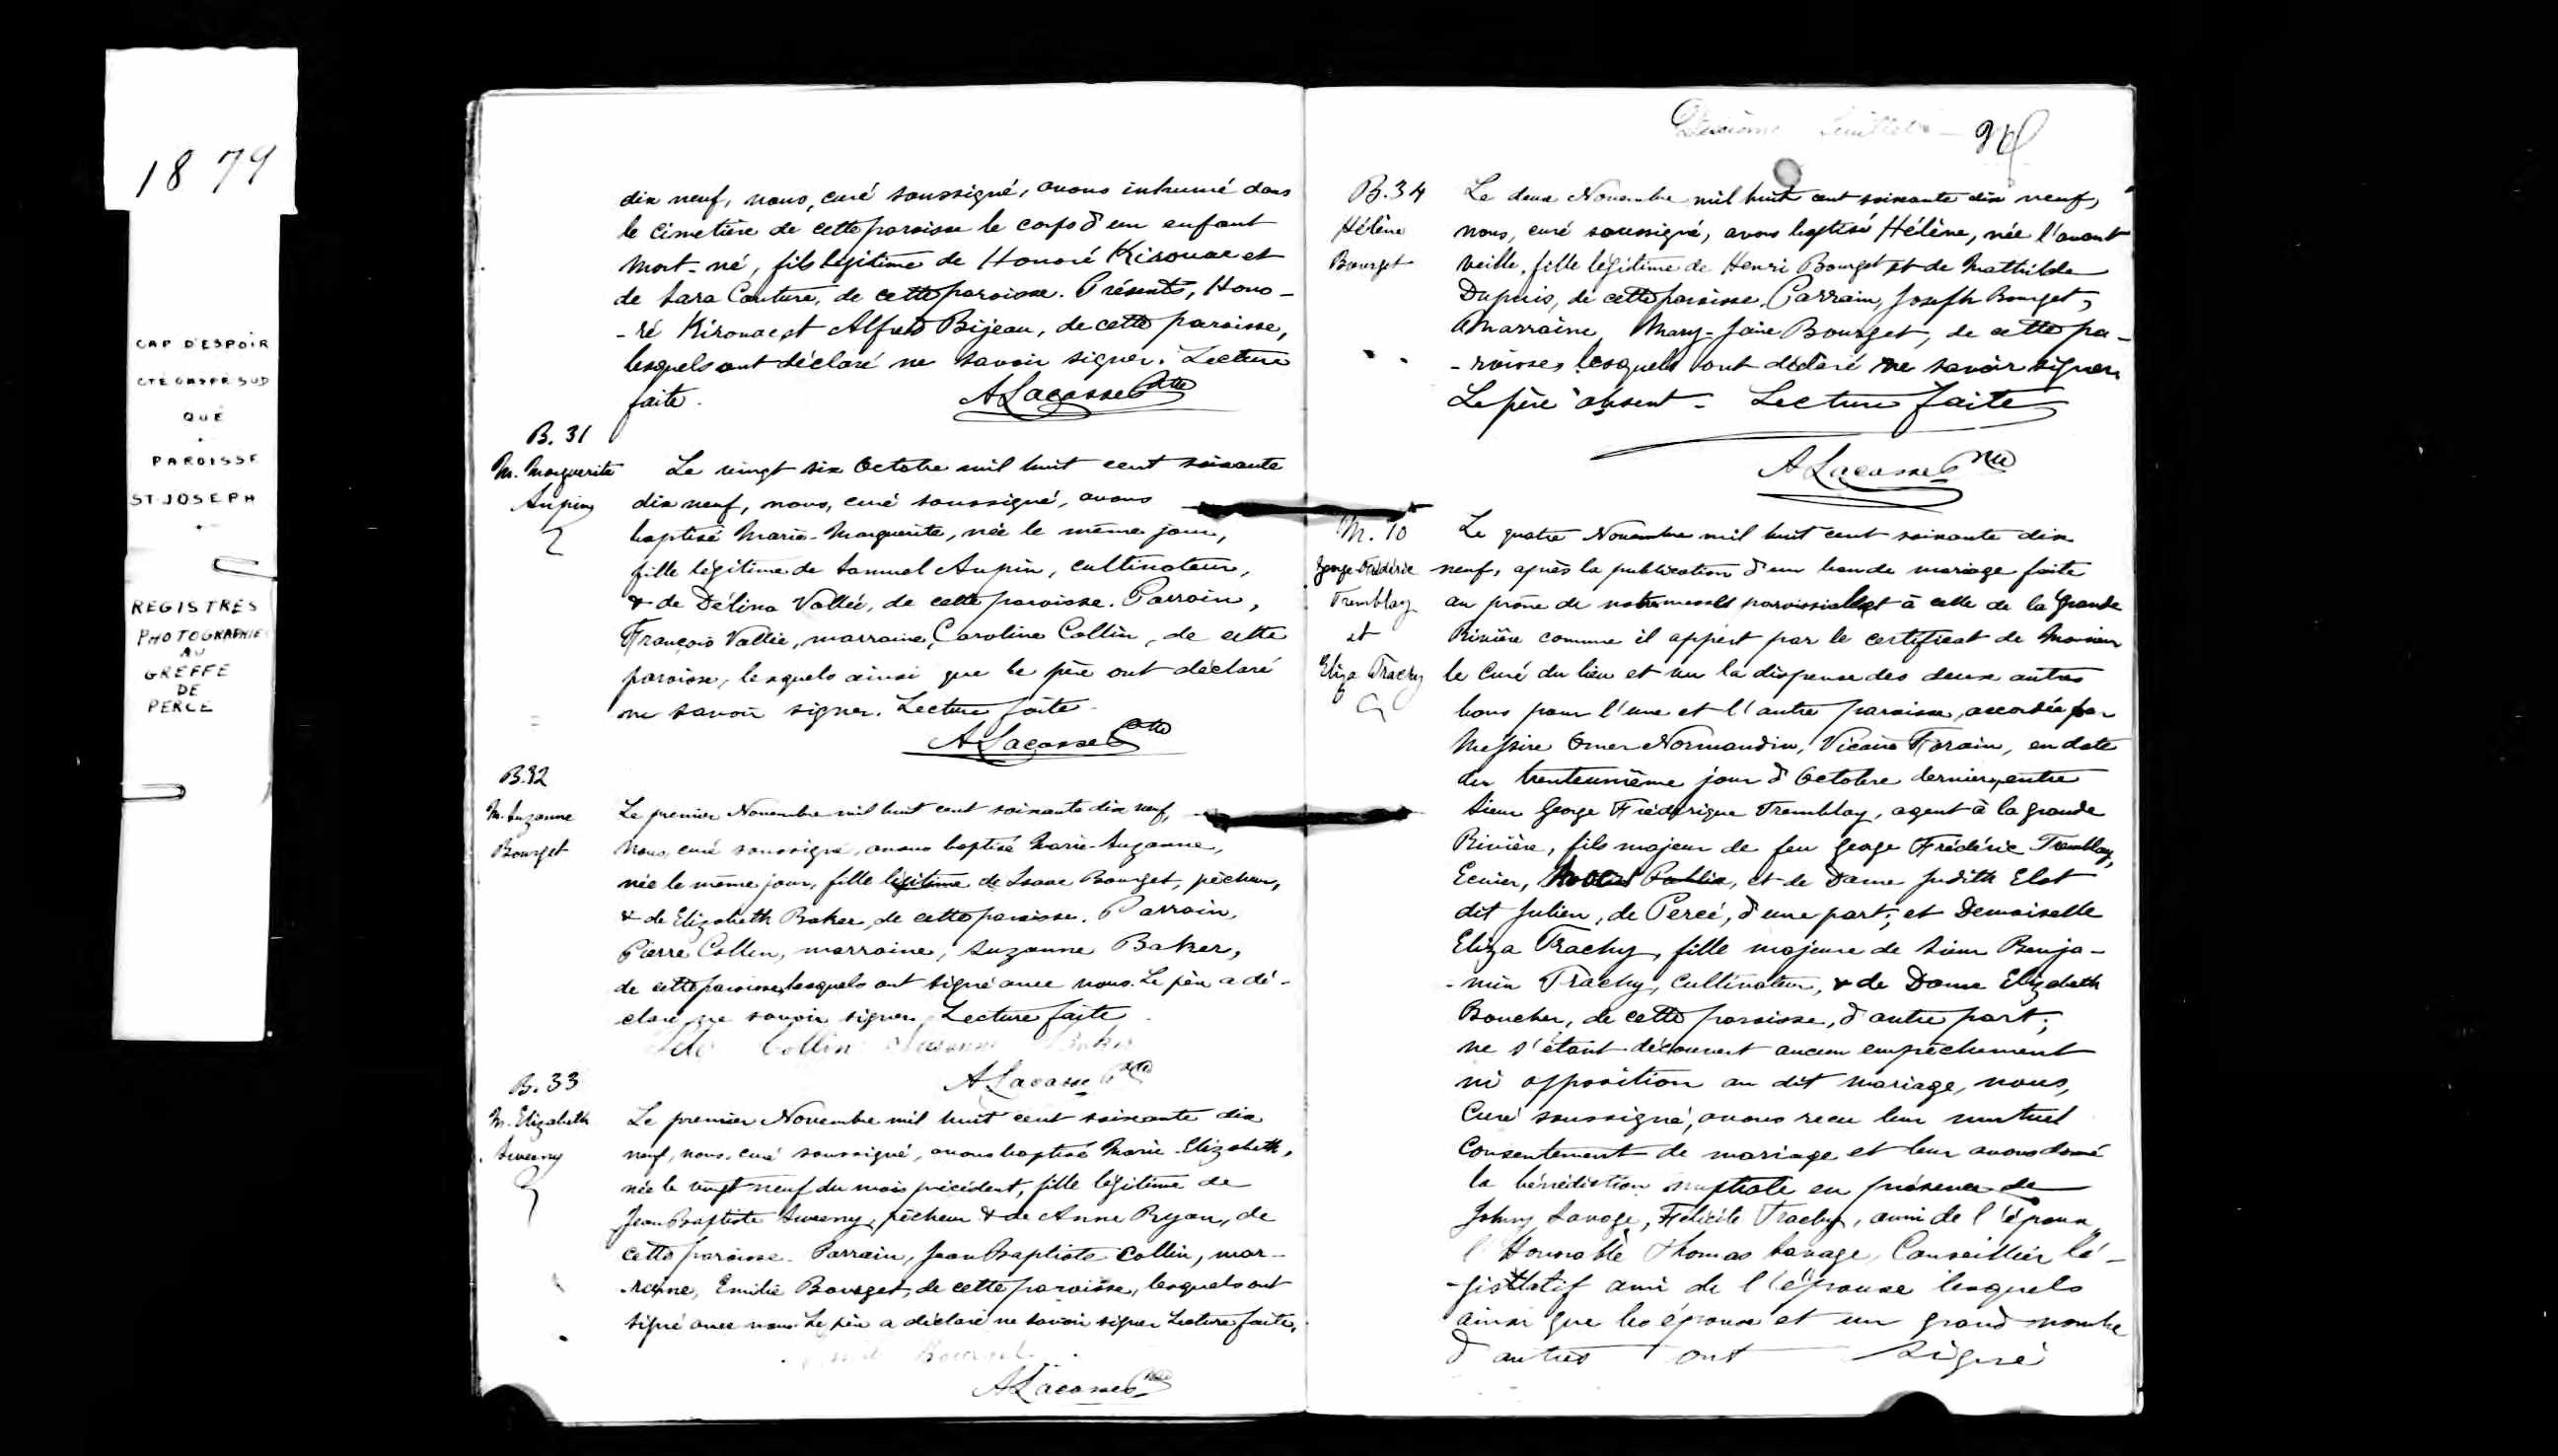 1879
CAP D'ESPOIR
CTÉ GASPÉ SUD
QUÉ
PAROISSE
ST-JOSEPH
REGISTRES
PHOTOGRAPHIÉ
AU
GREFFE
DE
PERCÉ
dix neuf, nous, curé soussigné, avons inhumé dans
le cimetière de cette paroisse le corps d'un enfant
mort-né, fils légitime de Honoré Kirouac et
de Sara Couture, de cette paroisse. Présents, Hono-
-ré Kirouac et Alfred Bijeau, de cette paroisse,
lesquels ont déclaré ne savoir signer. Lecture
faite.
A Lacasse Ptre
B. 31
M. Marguerite
Aupin
Le vingt six Octobre mil huit cent soixante
dix neuf, nous, curé soussigné, avons
baptisé Marie-Marguerite, née le même jour,
fille légitime de Samuel Aupin, cultivateur,
& de Délina Vallée, de cette paroisse. Parrain,
François Vallée, marraine, Caroline Collin, de cette
paroisse, lesquels ainsi que le père ont déclaré
ne savoir signer. Lecture faite.
A Lacasse Ptre
B.32
M. Suzanne
Bourget
Le premier Novembre mil huit cent soixante dix neuf,
nous, curé soussigné, avons baptisé Marie-Suzanne,
née le même jour, fille légitime de Isaac Bourget, pêcheur,
& de Elizabeth Baker, de cette paroisse. Parrain,
Pierre Collin, marraine, Suzanne Baker,
de cette paroisse, lesquels ont signé avec nous. Le père a dé-
claré ne savoir signer. Lecture faite
Collin Baker
A Lacasse Ptre
B. 33
M. Elizabeth
Sweeny
Le premier Novembre mil huit cent soixante dix
neuf, nous, curé soussigné, avons baptisé Marie-Elizabeth,
née le vingt neuf du mois précédent, fille légitime de
Jean Baptiste Sweeny, pêcheur & de Anne Ryan, de
cette paroisse. Parrain, Jean Baptiste Collin, mar-
raine, Emilie Bourget, de cette paroisse, lesquels ont
signé avec nous. Le père a déclaré ne savoir signer. Lecture faite.
Bourget
A Lacasse Ptre
B. 34
Hélène
Bourget
Le deux Novembre mil huit cent soixante dix neuf,
nous, curé soussigné, avons baptisé Hélène, née l'avant
veille, fille légitime de Henri Bourget et de Mathilde
Dupuis, de cette paroisse. Parrain, Joseph Bourget,
Marraine, Mary-Jane Bourget, de cette pa-
-roisse, lesquels ont déclaré ne savoir signer.
Le père absent. Lecture faite
A Lacasse Ptre
M. 10
George Frédéric
Tremblay
et
Eliza Trachy
Le quatre Novembre mil huit cent soixante dix
neuf, après la publication d'un ban de mariage faite
au prône de notre messe paroissiale et à celle de la Grande
Rivière comme il appert par le certificat de Monsieur
le Curé du lieu et vu la dispense des deux autres
bans pour l'une et l'autre paroisse, accordée par
Messire Omer Normandin, Vicaire Forain, en date
du trenteunième jour d'Octobre dernier, entre
Sieur George Fréderique Tremblay, agent à la grande
Rivière, fils majeur de feu George Frédéric Tremblay,
Ecuier, et de Dame Judith Elot
dit Julien, de Percé, d'une part; et Demoiselle
Eliza Trachy, fille majeure de Sieur Benja-
-min Trachy, Cultivateur, & de Dame Elizabeth
Boucher, de cette paroisse, d'autre part;
ne s'étant découvert aucun empêchement
ni opposition au dit mariage, nous,
Curé soussigné, avons recu leur mutuel
Consentement de mariage et leur avons donné
la bénédiction nuptiale en présence de
Johny Savage, Trachy, ami de l'époux
l'Honorable Thomas Savage, Conseillier lé-
-gislatif ami de l'épouse lesquels
ainsi que les époux et un grand nombre
d'autres ont signé